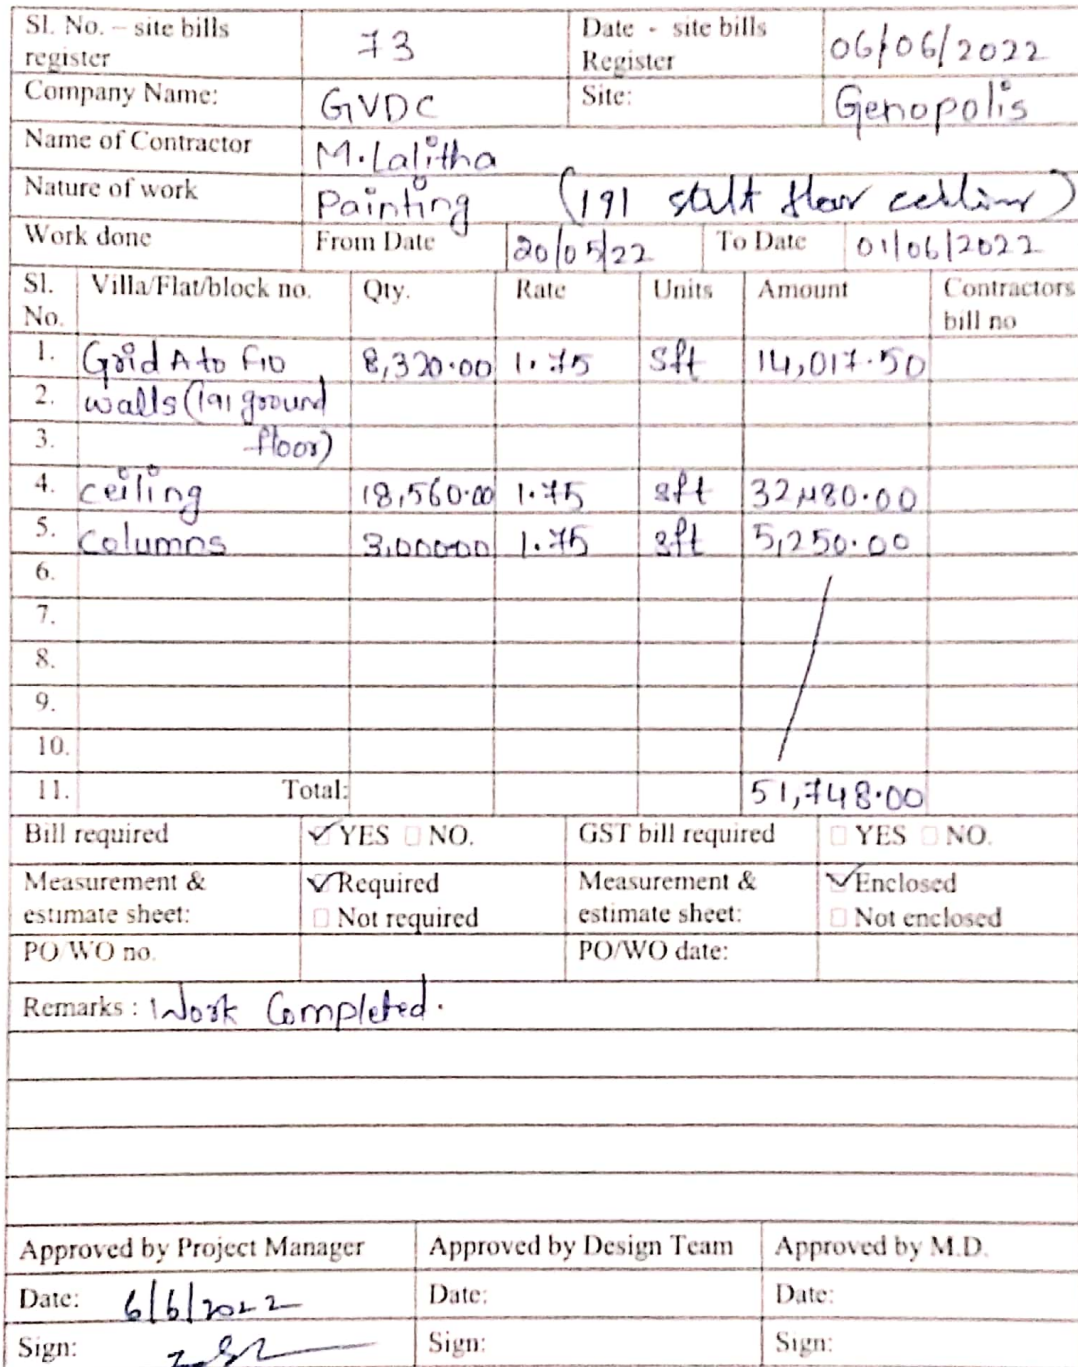 Sl. No. – site bills register 73 Date - site bills Register 06/06/2022
Company Name: GVDC Site: Genopolis
Name of Contractor M.Lalitha
Nature of work Painting (191 stilt floor ceiling)
Work done From Date 20/05/22 To Date 01/06/2022
Sl. No. Villa/Flat/block no. Qty. Rate Units Amount Contractors bill no
1. Grid A to F10 8,320.00 1.75 Sft 14,017.50
2. walls (191 ground
3. floor)
4. ceiling 18,560.00 1.75 sft 32,480.00
5. Columns 3,000.00 1.75 sft 5,250.00
6.
7.
8.
9.
10.
11. Total: 51,748.00
Bill required YES NO. GST bill required YES NO.
Measurement & estimate sheet: Required Not required Measurement & estimate sheet: Enclosed Not enclosed
PO/WO no. PO/WO date:
Remarks : Work Completed.
Approved by Project Manager Approved by Design Team Approved by M.D.
Date: 6/6/2022 Date: Date:
Sign: Sign: Sign: